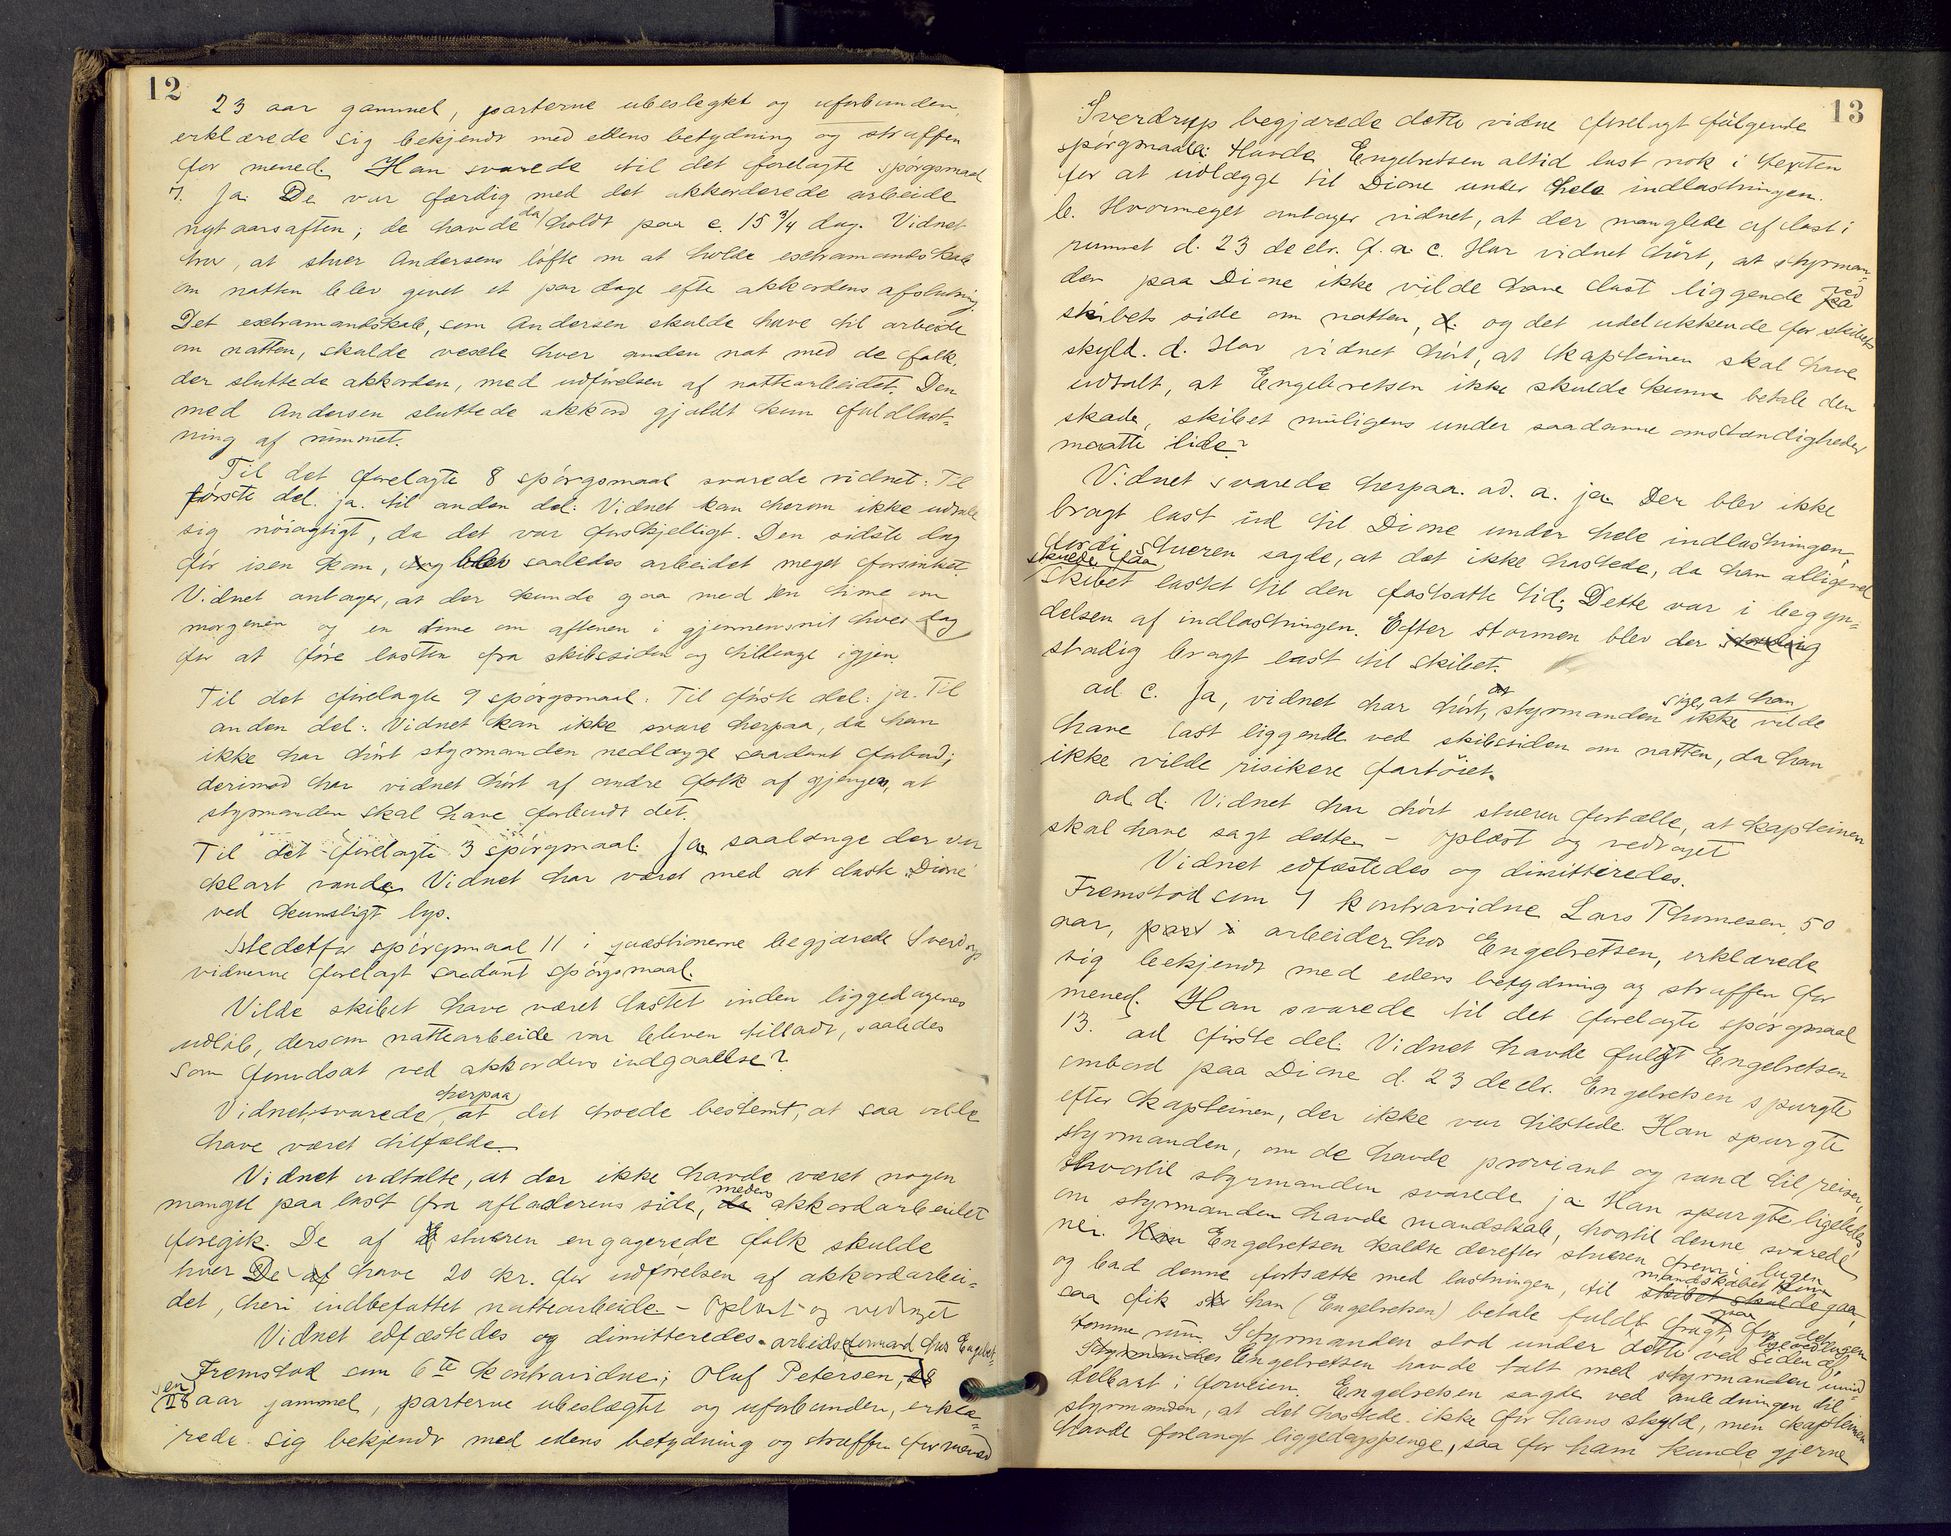 12
23 aar gammel, parterne ubeslegtet og uforbunden,
erklærede sig bekjendt med edens betydning og straffen
for mened. Han svarede til det forelagte spørgsmaal
7. Ja. De var færdig med det akkorderede arbeide
nytaarsaften; de havde da holdt paa c. 15 3/4 dag. Vidnet
tror, at stuer Andersens løfte om at holde extramandskab
om natten blev givet et par dage efter akkordens afslutning.
Det extramandskab, som Andersen skulde have til arbeide
om natten, skulde vexle hver anden nat med de folk,
der sluttede akkorden, med udførelsen af nattearbeidet. Den
med Andersen sluttede akkord gjaldt kun fuldlast-
ning af rummet.
Til det forelagte 8 spørgsmaal svarede vidnet: Til
første del: ja. til anden del: Vidnet kan herom ikke udtale
sig nøiagtigt, da det var forskjelligt. Den sidste dag
før isen kom, blev saaledes arbeidet meget forsinket.
Vidnet antager, at der kunde gaa med en time om
morgenen og en time om aftenen i gjennemsnit hver dag
for at føre lasten fra skibssiden og tilbage igjen.
Til det forelagte 9 spørgsmaal: Til første del: ja. Til
anden del: Vidnet kan ikke svare herpaa, da han
ikke har hørt styrmanden nedlægge saadant forbud;
derimod har vidnet hørt af andre folk af gjengen, at
styrmanden skal have forbudt det.
Til det forelagte 3 spørgsmaal. Ja, saalænge der var
klart vande. Vidnet har været med at laste "Dione"
ved kunstigt lys.
Istedetfor spørgsmaal 11 i quæstionerne begjærede Sverdrup
vidnerne forelagt saadant spørgsmaal:
Vilde skibet have været lastet inden liggedagenes
udløb, dersom nattearbeide var bleven tilladt, saaledes
som forudsat ved akkordens indgaaelse?
Vidnet svarede herpaa, at det troede bestemt, at saa vilde
have været tilfælde.
Vidnet udtalte, at der ikke havde været nogen
mangel paa last fra afladerens side, medens akkordarbeidet
foregik. De af stueren engagerede folk skulde
hver have 20 kr. for udførelsen af akkordarbei-
det, heri indbefattet nattearbeide – Oplæst og vedtaget
Vidnet edfæstedes og dimitteredes. arbeidsformand hos Engebret-
sen
Fremstod som 6te kontravidne; Oluf Petersen,
28 aar gammel, parterne ubeslægtet og uforbunden, erklæ-
rede sig bekjendt med edens betydning og straffen for mened
13
Sverdrup begjærede dette vidne forelagt følgende
spørgsmaal: a. Havde Engebretsen altid last nok i texten
for at udlægge til Dione under hele indlastningen.
b. Hvormeget antager vidnet, at der manglede af last i
rummet d. 23 decbr. f. a. c. Har vidnet hørt, at styrman-
den paa Dione ikke vilde have last liggende ved
skibets side om natten, og det udelukkende for skibets
skyld. d. Har vidnet hørt, at kapteinen skal have
udtalt, at Engebretsen ikke skulde kunne betale den
skade, skibet muligens under saadanne omstændigheder
maatte lide?
Vidnet svarede herpaa. ad. a. ja. Der blev ikke
bragt last ud til Dione under hele indlastningen,
fordi stueren sagde, at det ikke hastede, da han alligevel
skulde faa
skibet lastet til den fastsatte tid. Dette var i begyn-
delsen af indlastningen. Efter stormen blev der
stadig bragt last til skibet.
ad. c. Ja, vidnet har hørt, at styrmanden sige, at han ikke vilde
have last liggende ved skibssiden om natten, da han
ikke vilde risikere fartøiet.
ad. d. Vidnet har hørt stueren fortælle, at kapteinen
skal have sagt dette. – Oplæst og vedtaget
Vidnet edfæstedes og dimitteredes.
Fremstod som 7 kontravidne Lars Thomesen, 50
aar, arbeider hos Engebretsen, erklærede
sig bekjendt med edens betydning og straffen for
mened. Han svarede til det forelagte spørgsmaal
13. ad første del: Vidnet havde fulgt Engebretsen
ombord paa Dione d. 23 decbr. Engebretsen spurgte
efter kapteinen, der ikke var tilstede. Han spurgte
styrmanden, om de havde proviant og vand til reisen,
hvortil styrmanden svarede ja. Han spurgte ligeledes
om styrmanden havde mandskab, hvortil denne svarede
nei. Engebretsen kaldte derefter stueren frem i lugen
og bad denne fortsætte med lastningen, til mandskabet kom
saa fik han (Engebretsen) betale fuld fragt for det
tomme rum. Styrmanden stod under dette ved siden af lugen
Engebretsen havde talt med styrmanden umid-
delbart i forveien. Engebretsen sagde ved anledningen til
styrmanden, at det hastede ikke for hans skyld, men kapteinen
havde forlangt liggedagspenge, saa for ham kunde gjerne